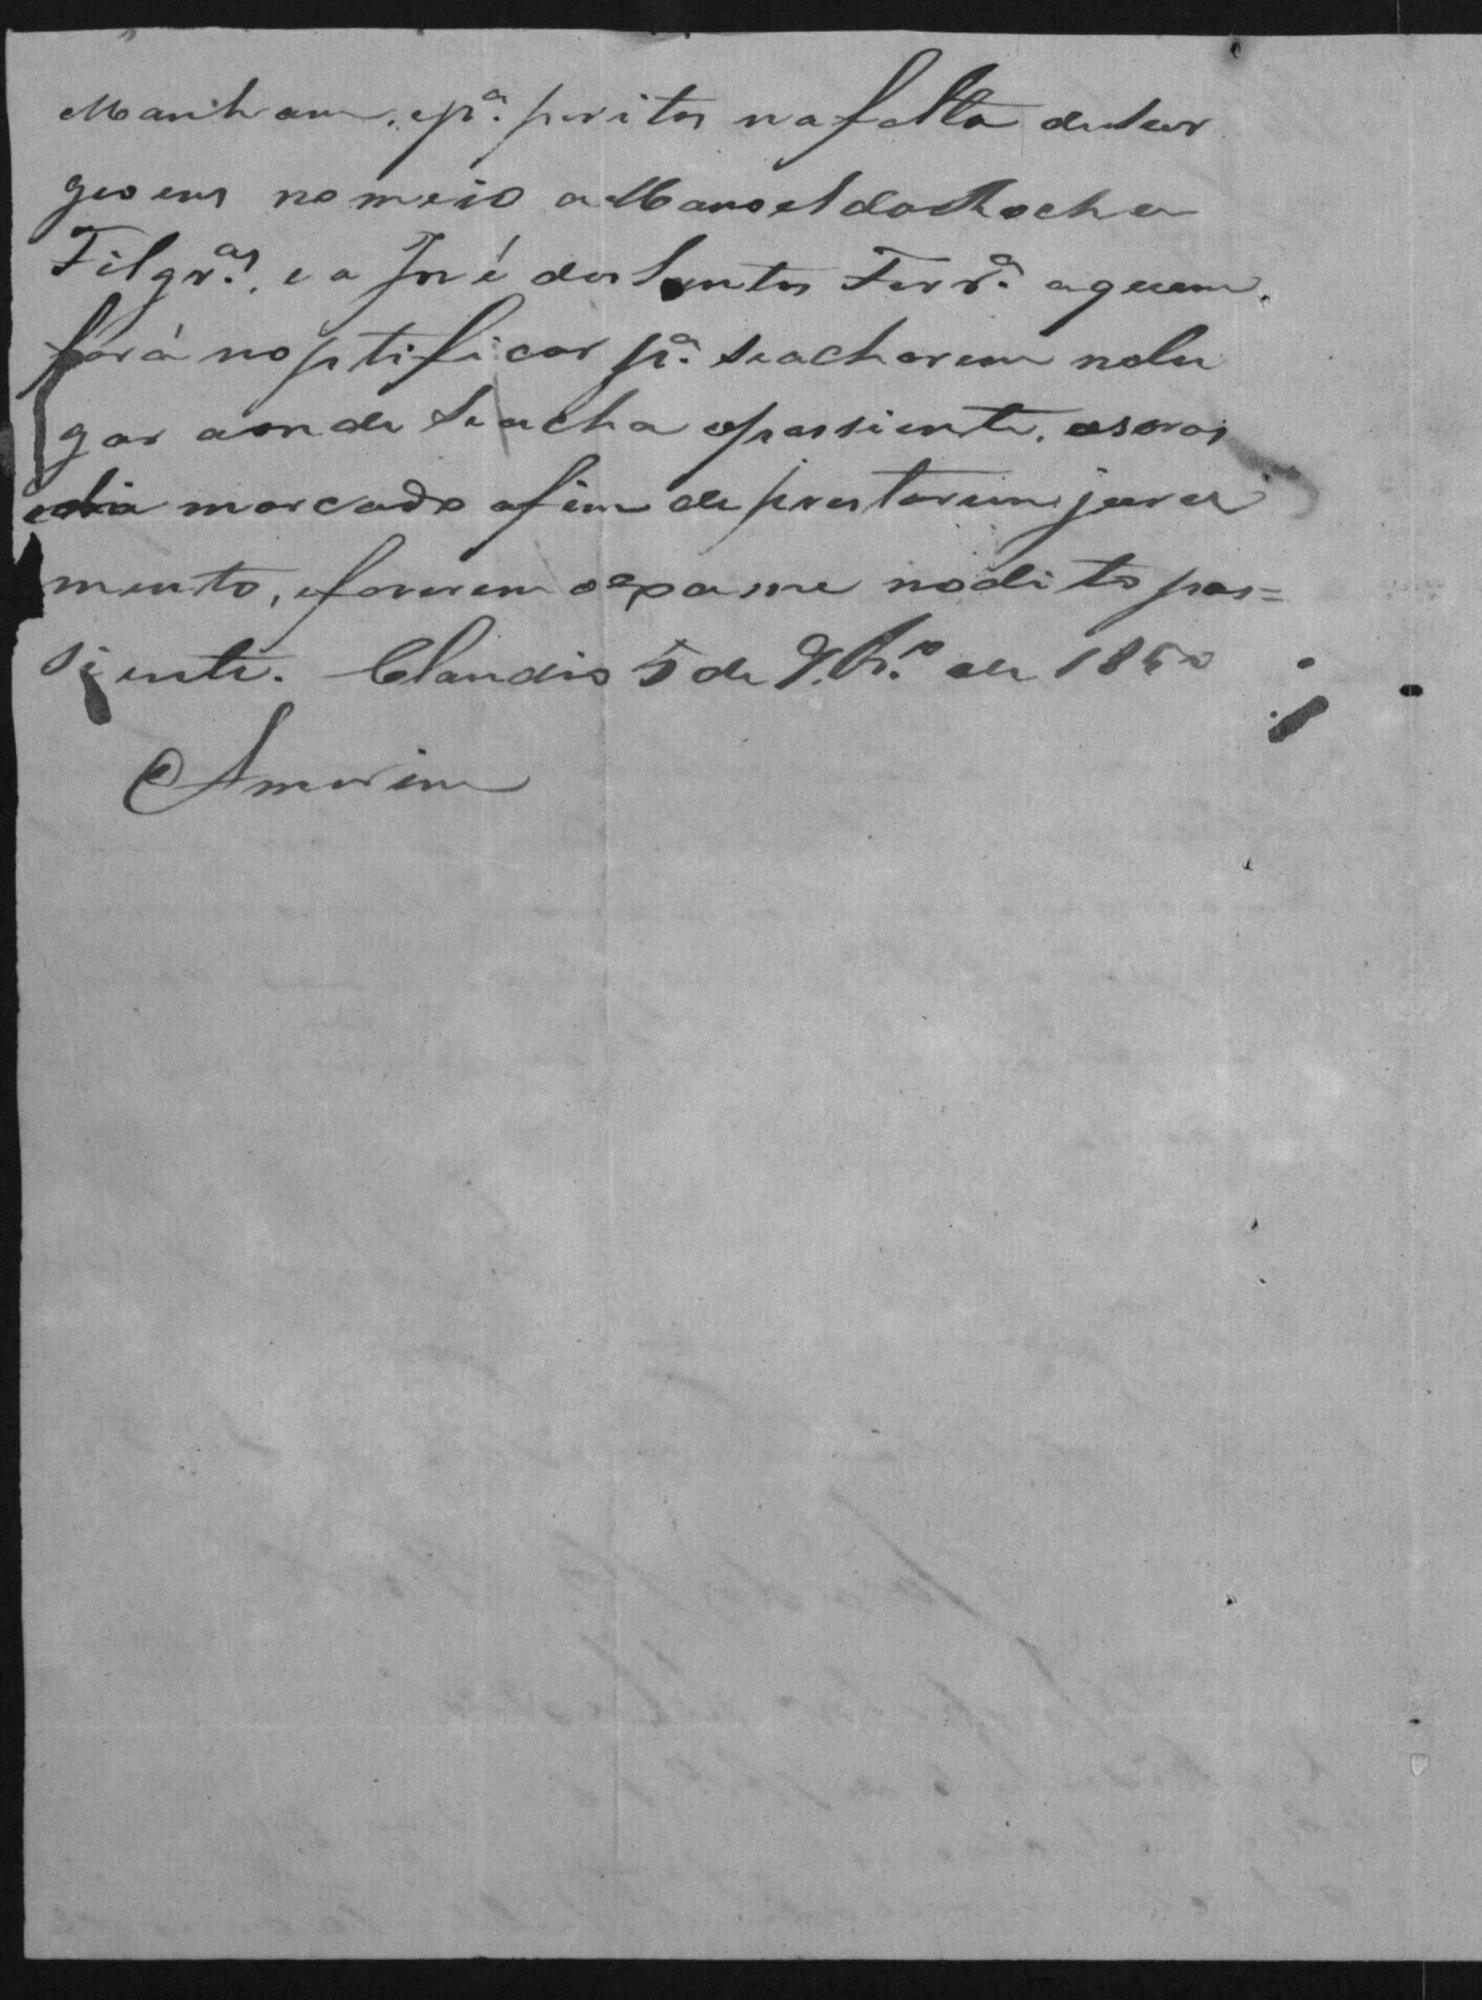 Manham, e pª. peritos na falta de Sur
geoens nomeio a Manoel da Rocha
Filgrªs., e a José dos Santos Ferrª. a quem
fará noptificar pª. se acharem no lu
gar aonde se acha o passiente, as oras
e dia marcado afim de prestarem jura
mento, e fazerem o expame no dito pas=
siente. Claudio 5 de 9.brº de 1850
Amorim